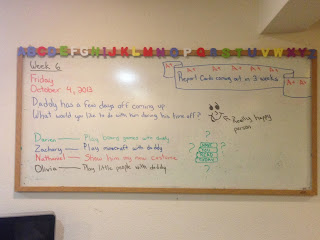 ABCDEFGHIJKLMNOPQRSTUVWXYZ
Week 6
Friday
October 4, 2013
A+ A+ A+ A+ A+ A+
Report Cards coming out in 3 weeks
Daddy has a few days off coming up
What would you like to do with him during his time off?
Really happy
person
Darren Play board games with daddy
Zachary Play minecraft with daddy
Nathaniel Show him my new costume
Olivia Play little people with daddy
? ? ?